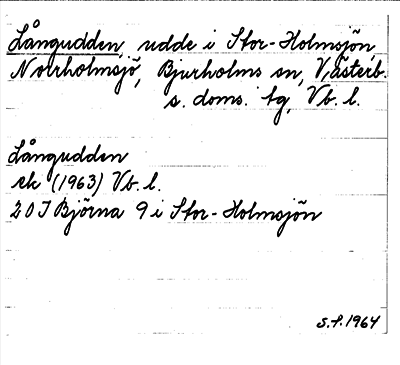 Långudden, udde i Stor-Holmsjön,
Norrholmsjö, Bjurholms sn, Västerb.
s. doms. tg, Vb. l.
Långudden
ek (1963) Vb. l.
20 J Björna 9 i Stor-Holmsjön
S.F. 1964